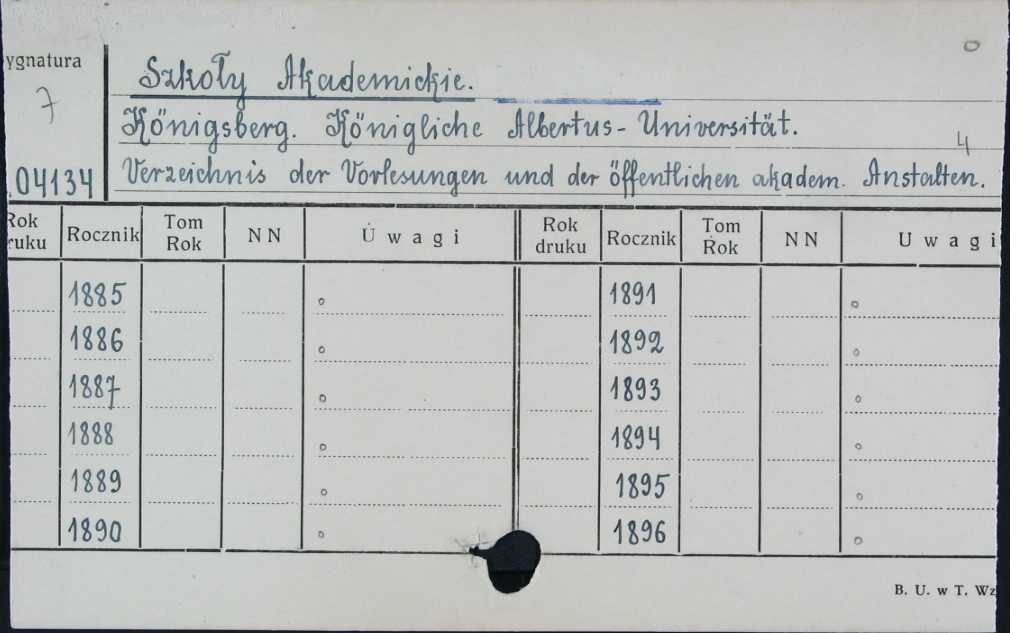 ygnatura
7
.04134
Szkoły Akademickie.
Königsberg. Königliche Albertus-Universität.
4
Verzeichnis der Vorlesungen und der öffentlichen akadem. Anstalten.
Rok ruku Rocznik Tom Rok NN Uwagi Rok druku Rocznik Tom Rok NN Uwagi
1885 1891
1886 1892
1887 1893
1888 1894
1889 1895
1890 1896
B. U. w T. Wz